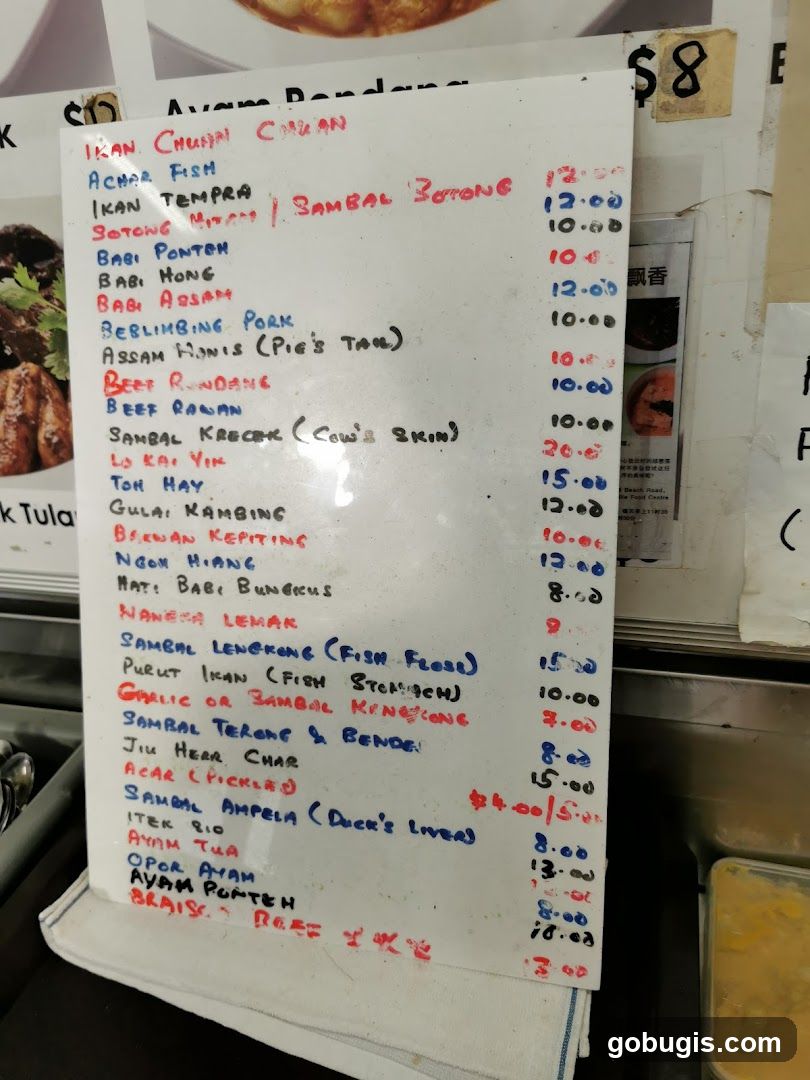 $8
Ayam Rendang
IKAN CHUAN CHUAN
ACHAR FISH
IKAN TEMPRA
SOTONG HITAM / SAMBAL SOTONG 12.00
BABI PONTEH 12.00
BABI HONG 10.00
BABI ASSAM 10.
BEBLIMBING PORK 12.00
ASSAM MANIS (PIG'S TAIL) 10.00
BEEF RENDANG 10.
BEEF RAWAN 10.00
SAMBAL KRECEK (COW'S SKIN) 10.00
LO KAI YIK 20.0
TOH HAY 15.00
GULAI KAMBING 12.00
BAKWAN KEPITING 10.00
NGOH HIANG 12.00
HATI BABI BUNGKUS 8.00
LEMAK 8.
SAMBAL LENGKONG (FISH FLOSS) 15.00
PURUT IKAN (FISH STOMACH) 10.00
GARLIC OR SAMBAL KENGKONG 7.00
SAMBAL TERONG & BENDEI 8.00
JIU HERR CHAR 15.00
ACAR (PICKLES) $4.00/5.00
SAMBAL AMPELA (DUCK'S LIVER) 8.00
ITEK SIO 13.00
AYAM TUA 12.00
OPOR AYAM 8.00
AYAM PONTEH 10.00
BRAISED BEEF 13.00
飘香
k Tula
gobugis.com